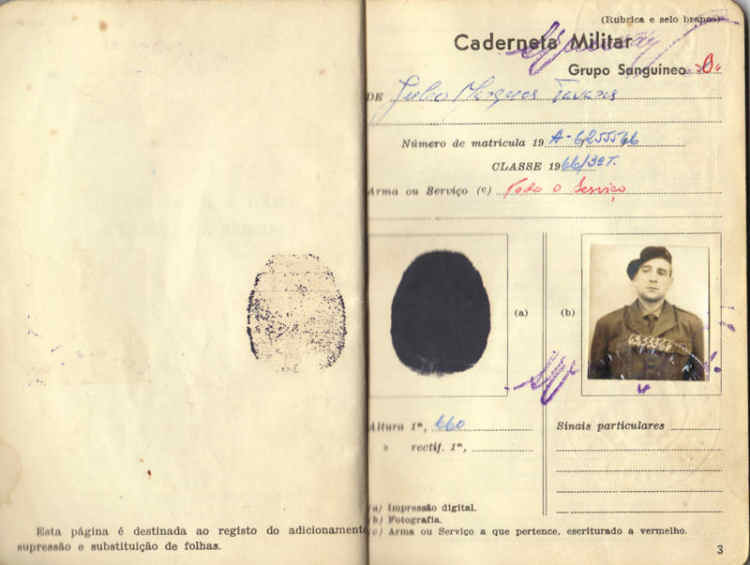 Esta página é destinada ao registo do adicionamento
supressão e substituição de folhas.
(Rubrica e selo branco)
Caderneta Militar
Grupo Sanguíneo B
DE Julio Marques Tavares
Número de matrícula 19 A-6255566
CLASSE 1966/3ºT.
Arma ou Serviço (c) Todo o Serviço
(a)
(b)
Altura 1m, 660
» rectif. 1m,
Sinais particulares
(a) Impressão digital.
(b) Fotografia.
(c) Arma ou Serviço a que pertence, escriturado a vermelho.
3